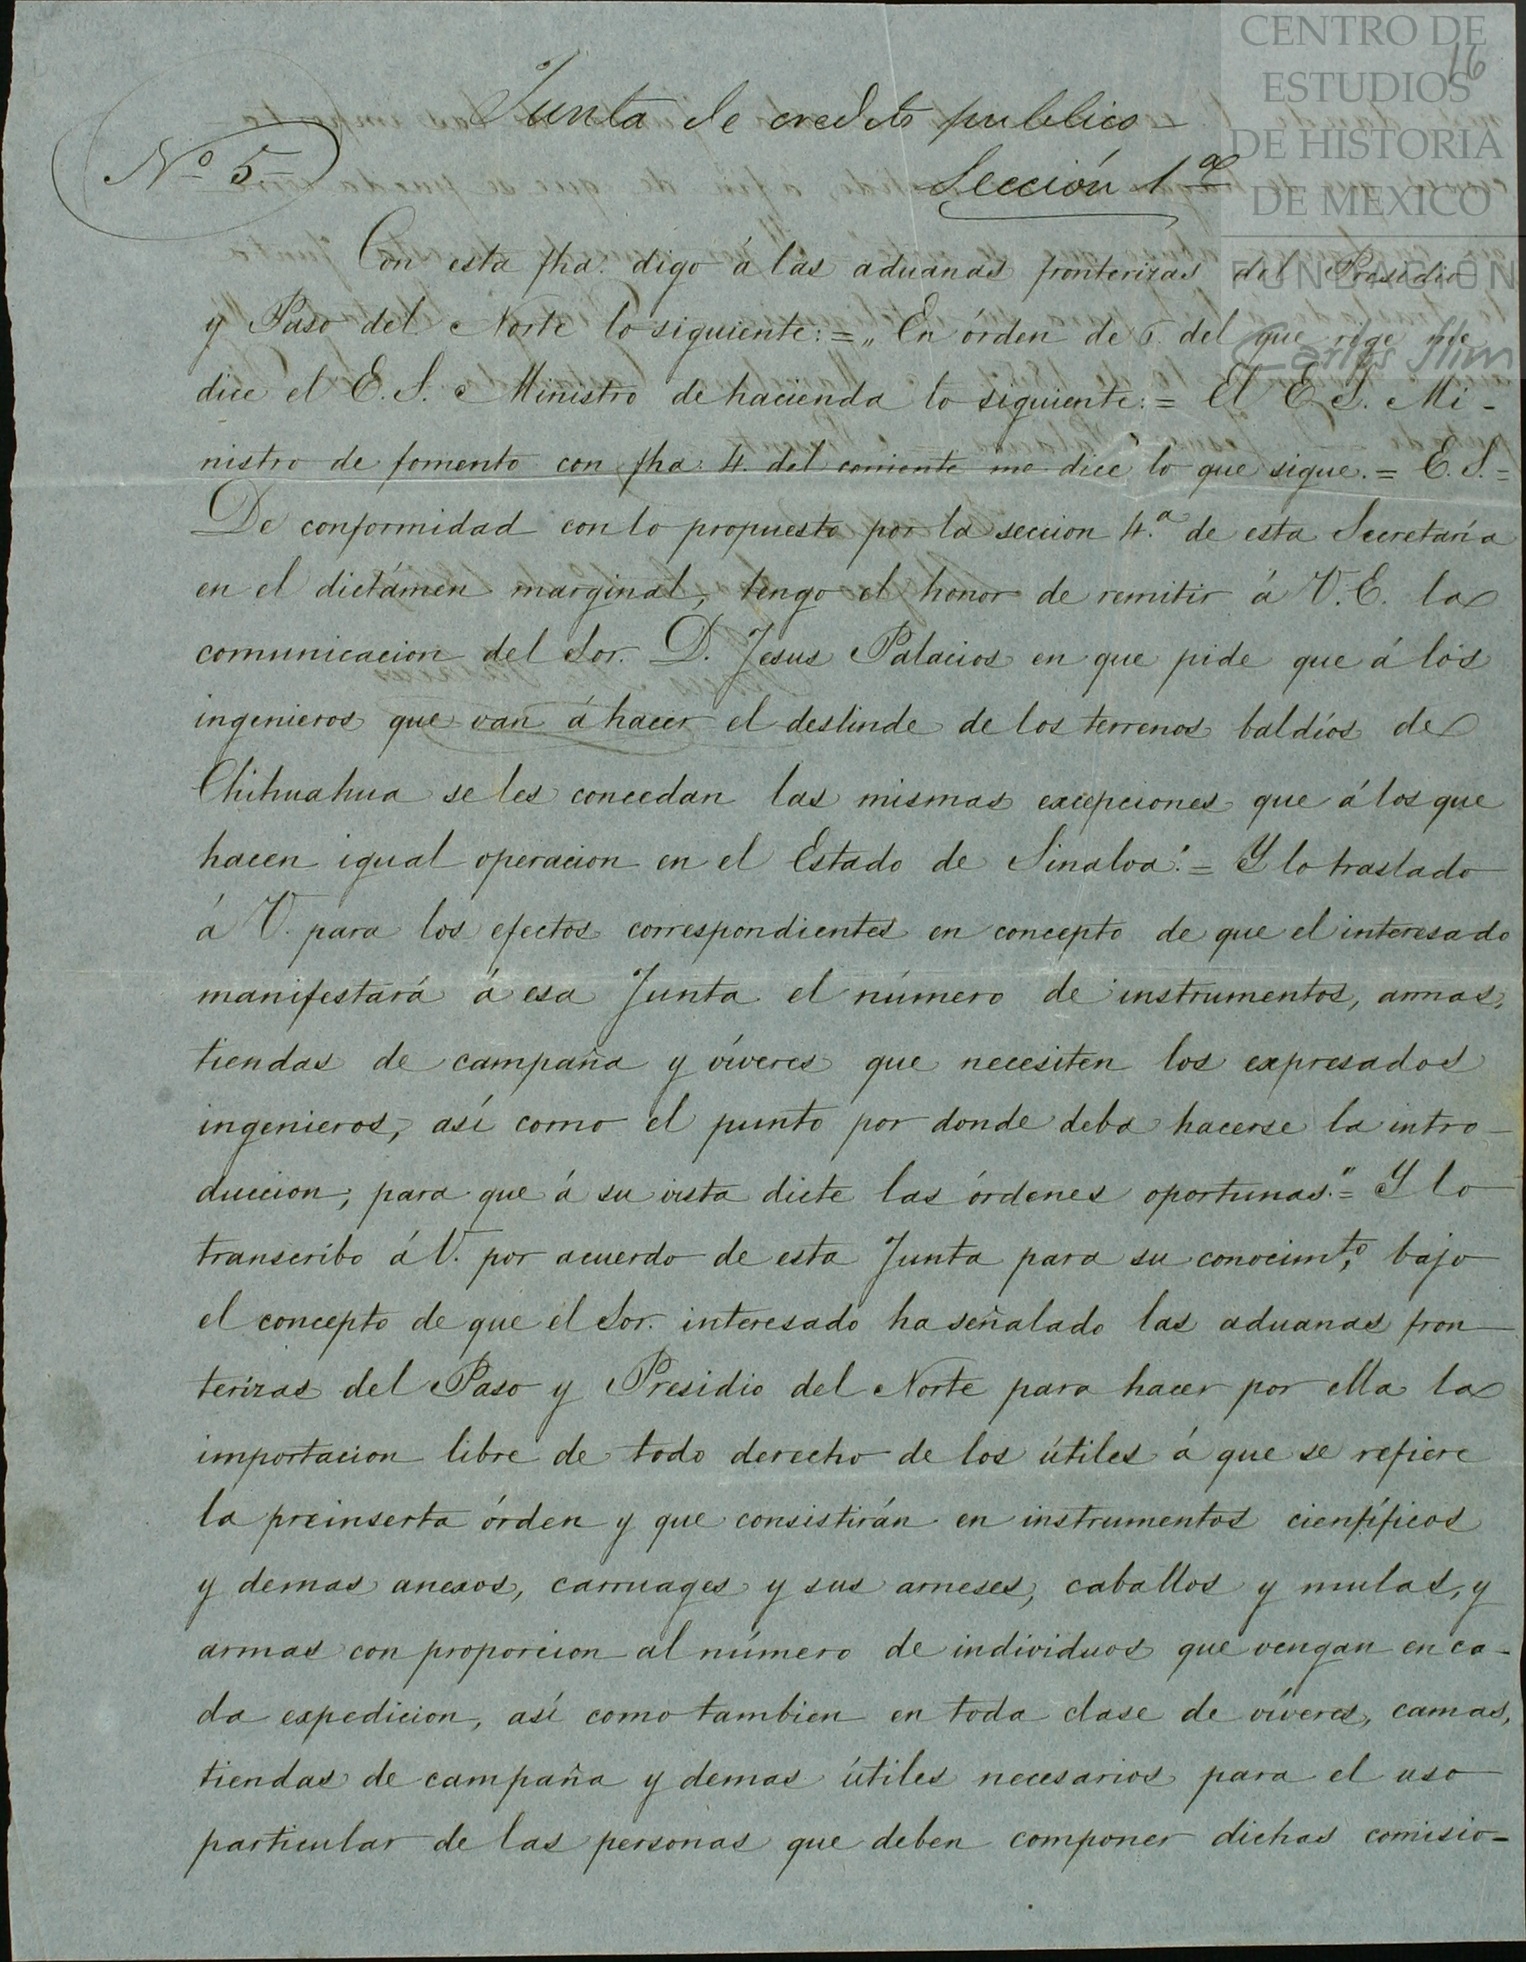 CENTRO DE
ESTUDIOS
DE HISTORIA
DE MEXICO
FUNDACIÓN
Carlos Slim
16
Junta de credito publico
Nº 5
Sección 1ª
Con esta fha. digo á las aduanas fronterizas del Presidio
y Paso del Norte lo siguiente: = „En órden de 6. del que rige me
dice el E. S. Ministro de hacienda lo siguiente: = El E. S. Mi-
nistro de fomento con fha. 4. del corriente me dice lo que sigue. = E. S. =
De conformidad con lo propuesto por la seccion 4.ª de esta Secretaría
en el dictámen marginal, tengo el honor de remitir á V. E. la
comunicacion del Sor. D. Jesus Palacios en que pide que á los
ingenieros que van á hacer el deslinde de los terrenos baldíos de
Chihuahua se les concedan las mismas excepciones que á los que
hacen igual operacion en el Estado de Sinaloa." = Y lo traslado
á V. para los efectos correspondientes en concepto de que el interesado
manifestará á esa Junta el número de instrumentos, armas,
tiendas de campaña y víveres que necesiten los expresados
ingenieros, así como el punto por donde deba hacerse la intro-
duccion, para que á su vista dicte las órdenes oportunas." = Y lo
transcribo á V. por acuerdo de esta Junta para su conocimto, bajo
el concepto de que el Sor. interesado ha señalado las aduanas fron
terizas del Paso y Presidio del Norte para hacer por ella la
importacion libre de todo derecho de los útiles á que se refiere
la preinserta órden y que consistirán en instrumentos científicos
y demas anexos, carruages y sus arneses, caballos y mulas, y
armas con proporcion al número de individuos que vengan en ca-
da expedicion, así como tambien en toda clase de víveres, camas,
tiendas de campaña y demas útiles necesarios para el uso
particular de las personas que deben componer dichas comisio-